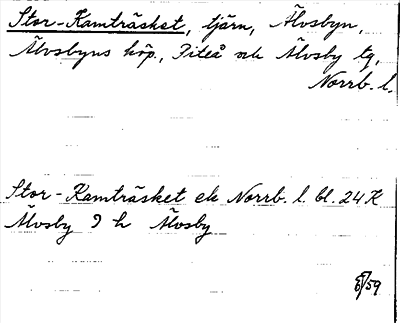 Stor-Kamträsket, tjärn, Älvsbyn,
Älvsbyns köp., Piteå och Älvsby tg,
Norrb. l.
Stor-Kamträsket ek Norrb. l. bl. 24 K
Älvsby 9 h Älvsby
/59